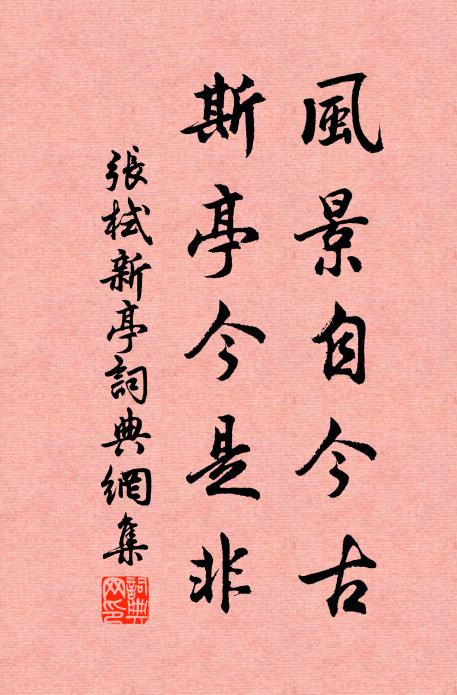 風景自今古
斯亭今是非
張栻新亭詞典網集
詞典网印